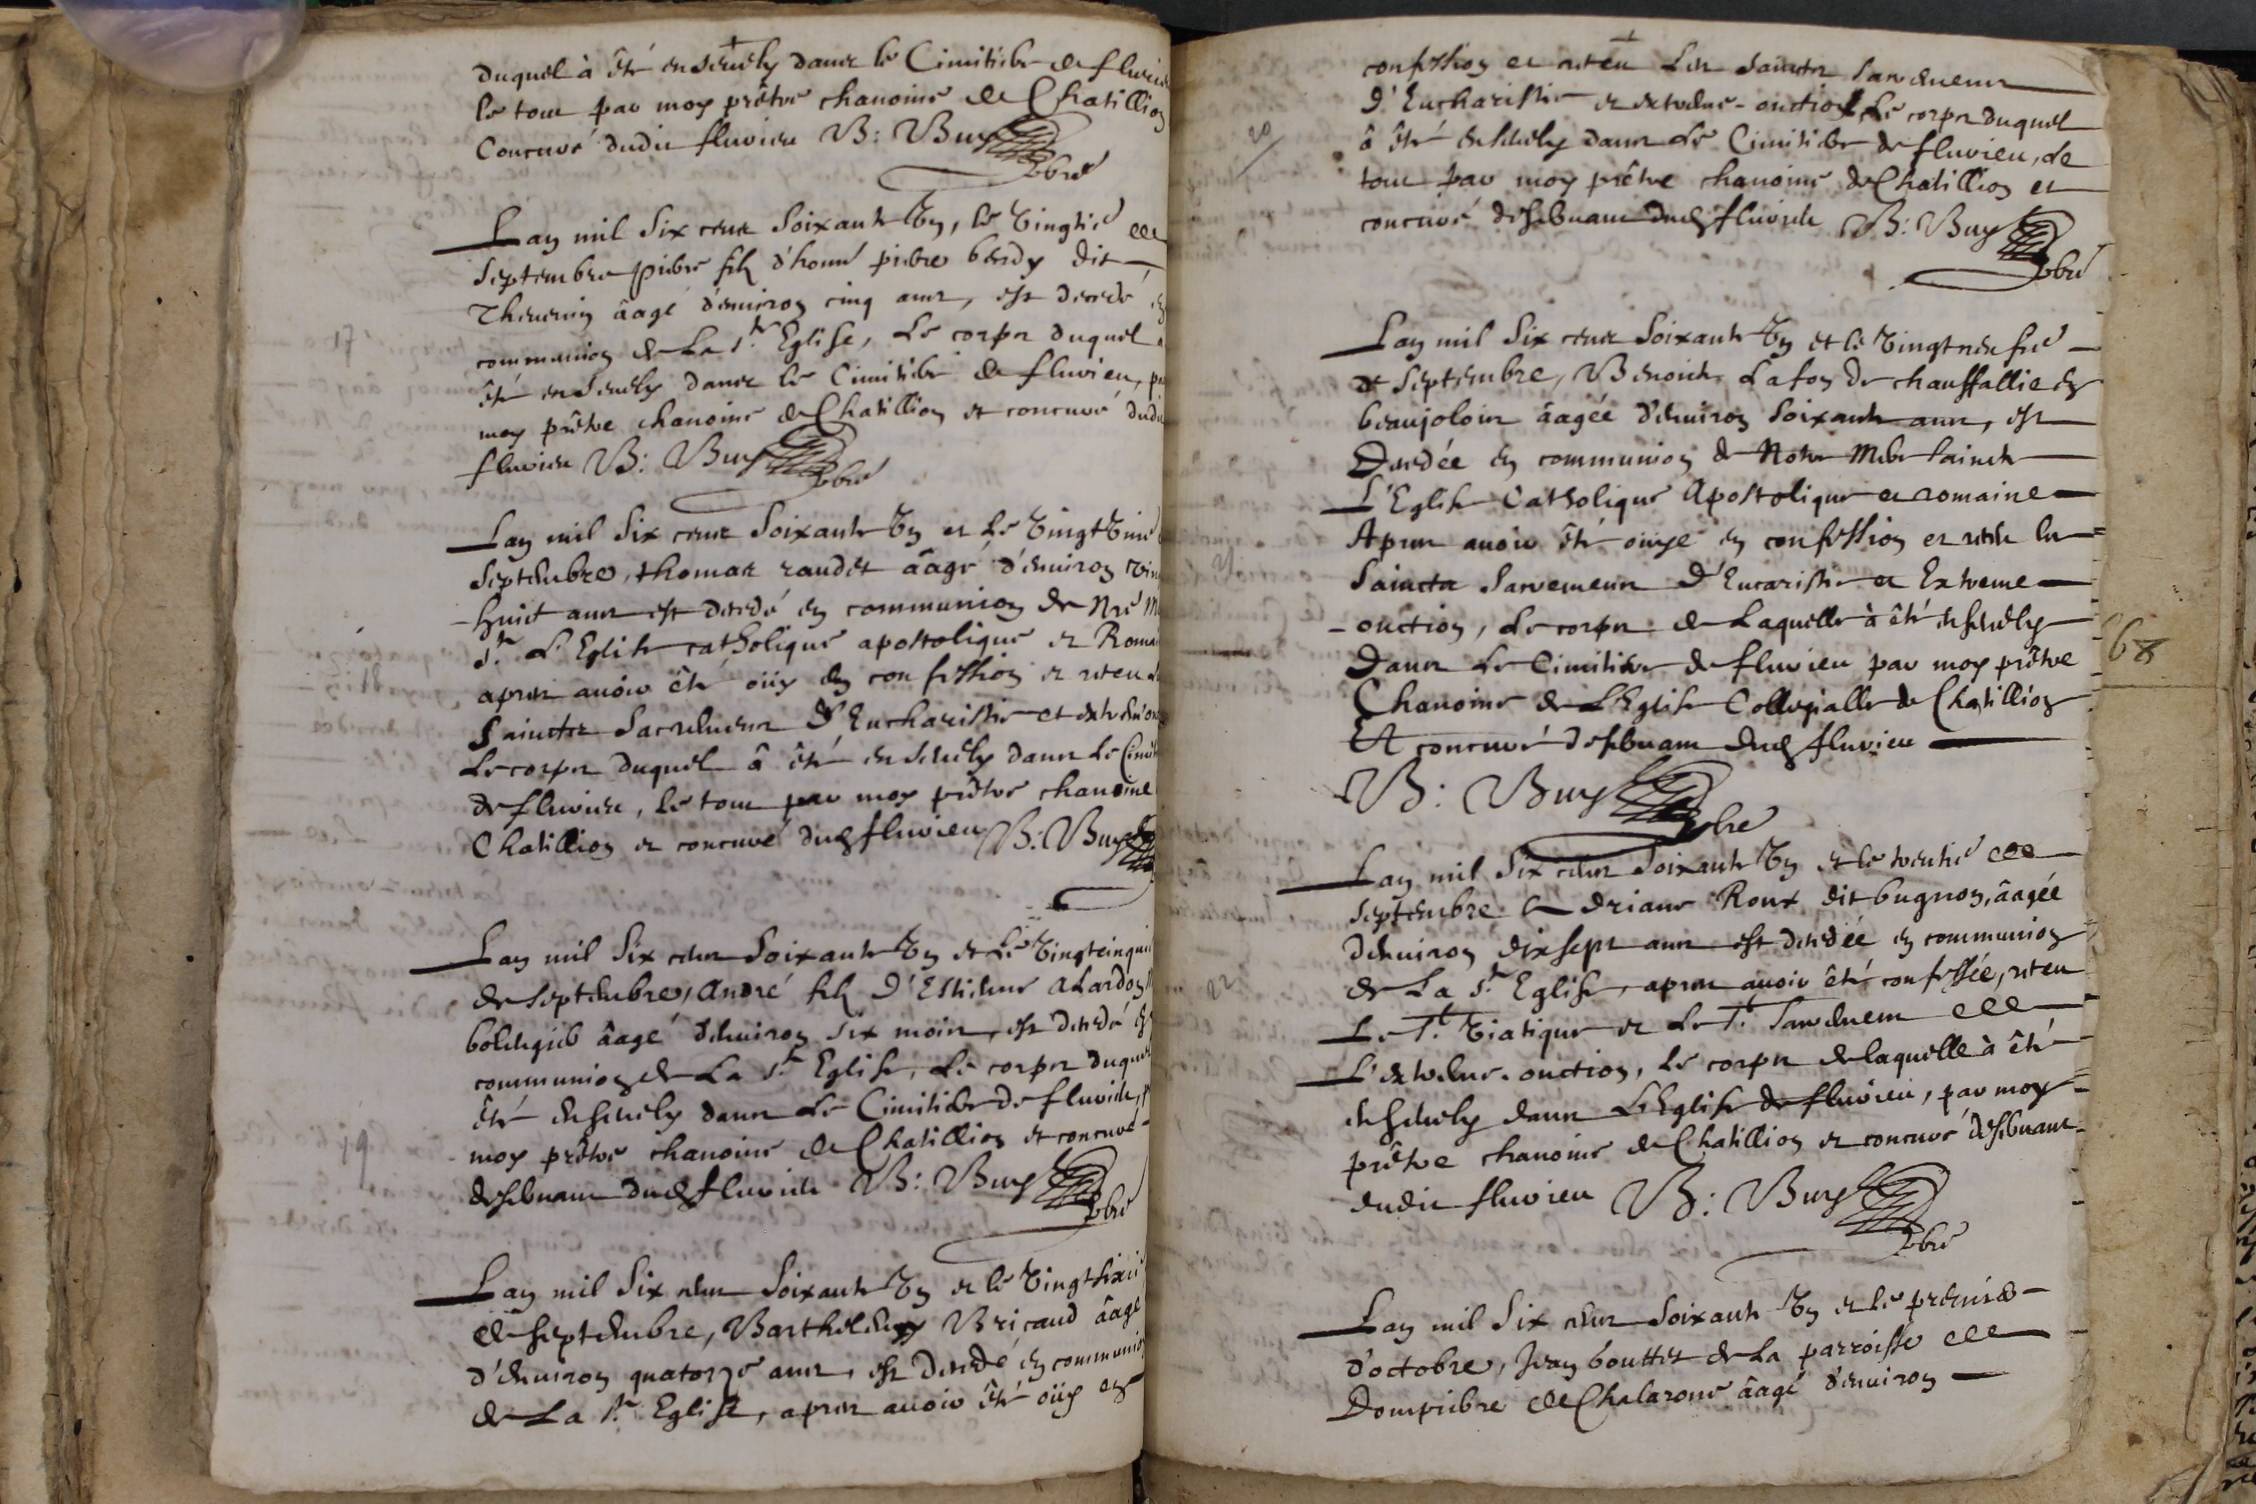 duquel à êté enseuely dans le Cimitiere de fluvie
le tout par moy prêtre chanoine de Chatillion
Concuré dudit fluvieu B: Buy
pbré
Lan mil six cens soixante Un, le Vingtié de
Septembre pierre filz d'honné pierre berdy dit
Theuenin âagé d'enuiron cinq ans, est decedé en
17
communion de La Ste Eglise, Le corps duquel a
êté enseuely dans le Cimitiere de fluvieu, p
moy prêtre chanoine de Chatillion et concuré dudi
fluvieu B: Buy
pbré
Lan mil six cens soixante Un et Le Vingt Unié
Septembre, thomas raudet âagé d'enuiron Vin
-huit ans est decedé en communion de Nre M
Ste L'Eglise catholique apostolique et Roma
apres auoir êté oüy en confession et receu L
Saincts Sacremens D'Eucharistie et extreme on
Le corps duquel â êté enseuely dans Le Cimit
de fluvieu, le tout par moy prêtre chanoine
Chatillion et concuré dud fluvieu B: Buy
Lan mil six cens soixante Un et Le Vingtcinqui
de septembre, André filz D'Estiene Alardon
bolengier âagé d'enuiron six mois, est decedé en
communion de La Ste Eglise, Le corps duquel
êté enseuely dans Le Cimitiere de fluvieu, p
19
moy prêtre chanoine de Chatillion et concuré
deseruant dud fluvieu B: Buy
pbré
Lan mil six cens soixante Un et le Vingtsixié
de septembre, Barthelemy Bricaud âagé
d'enuiron quatorze ans, est decedé en communio
de La Ste Eglise, apres auoir êté oüy en
confession et receu Les saincts Sacremens
D'Eucharistie et extreme-onction Le corps duquel
20
â êté enseuely dans Le Cimitiere de fluvieu, Le
tout par moy prêtre chanoine de Chatillion et
concuré deseruant dud fluvieu B: Buy
pbré
Lan mil six cens soixante Un et le Vingtneufié
de Septembre, Benoite Lafon de chauffallie en
beaujolois âagée d'enuiron soixante ans, est
Decedée en communion de Notre Mere saincte
L'Eglise Catholique Apostolique et romaine
Apres auoir êté ouye en confession et receu les
21
Saincts Sacremens D'Eucaristie et Extreme
-onction, Le corps de Laquelle à êté enseuely
Dans Le Cimitiere de fluvieu par moy prêtre
68
Chanoine de L'Eglise Collegialle de Chatillion
Et concuré deseruant dud fluvieu
B: Buy
pbre
Lan mil six cens soixante Un et le trentié de
septembre Adriane Roux dit bugnon, âagée
d'enuiron dixsept ans est decedée en communion
de La Ste Eglise, apres auoir êté confessée, receu
22
Le St Viatique et Le St Sacrement de
L'extreme-onction, Le corps de laquelle à êté
enseuely dans L'Eglise de fluvieu, par moy
prêtre chanoine de Chatillion et concuré deseruant
dudit fluvieu B: Buy
pbré
Lan mil six cens soixante Un et le premier
d'octobre, Jean bouttet de La parroisse de
Dompierre de Chalarone âagé d'enuiron